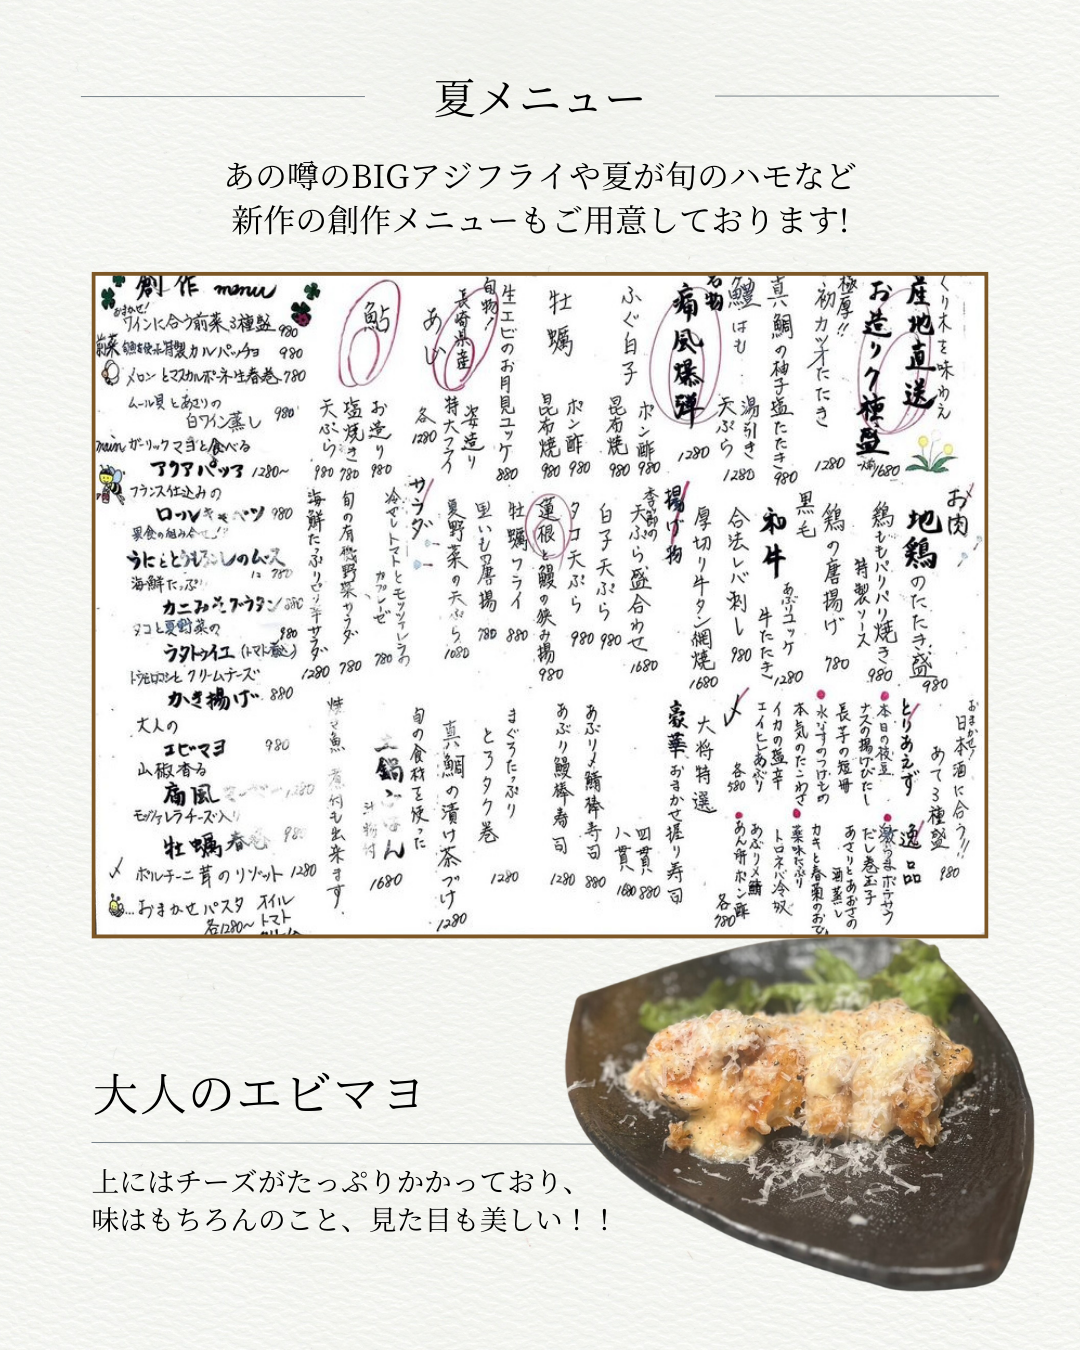 夏メニュー
あの噂のBIGアジフライや夏が旬のハモなど
新作の創作メニューもご用意しております!
産地直送
お造り7種盛
1680
極厚!!
初カツオたたき
1280
真鯛の柚子塩たたき
980
鱧 はも
湯引き
天ぷら
1280
名物
痛風爆弾
1280
ふぐ白子
ポン酢 980
昆布焼 980
牡蠣
ポン酢 980
昆布焼 980
生エビのお月見ユッケ
880
旬物!
長崎県産
あじ
姿造り
特大フライ
各1280
鮎
お造り 980
塩焼き 780
天ぷら 980
お肉
地鶏のたたき盛
980
鶏ももパリパリ焼き
特製ソース
980
鶏の唐揚げ
780
黒毛
和牛
あぶりユッケ
牛たたき
1280
合法レバ刺し
980
厚切り牛タン網焼
1680
揚げ物
季節の
天ぷら盛合わせ
1680
白子天ぷら
980
タコ天ぷら
980
蓮根と鰻の挟み揚
980
牡蠣フライ
880
里いもの唐揚
780
夏野菜の天ぷら
1080
サラダ
冷やしトマトとモッツァレラの
カプレーゼ
780
旬の有機野菜サラダ
780
海鮮たっぷりピリ辛サラダ
1280
おまかせ!
日本酒に合う!!
あて3種盛
980
とりあえず
本日の枝豆
ナスの揚げびたし
長芋の短冊
水なすのつけもの
本気のたこわさ
イカの塩辛
エイヒレあぶり
各580
逸品
だし巻玉子
あさりとあおさの
酒蒸し
カキと春菊のおひ
薬味たっぷり
トロネバ冷奴
あぶり〆鯖
あん肝ポン酢
各780
〆
大将特選
豪華おまかせ握り寿司
四貫 880
八貫 1680
あぶり〆鯖棒寿司
880
あぶり鰻棒寿司
1280
まぐろたっぷり
とろタク巻
1280
真鯛の漬け茶づけ
1280
旬の食材を使った
土鍋ごはん
汁物付
1680
焼き魚 煮付も出来ます。
創作 menu
おまかせ!
ワインに合う前菜3種盛 980
前菜
特製カルパッチョ 980
メロンとマスカルポーネ生春巻 780
ムール貝とあさりの
白ワイン蒸し 980
main ガーリックマヨと食べる
アクアパッツァ 1280~
フランス仕込みの
ロールキャベツ 980
うにととうもろこしのムース
780
海鮮たっぷり
カニみそグラタン 880
タコと夏野菜の
ラタトゥイユ (トマト煮込) 980
クリームチーズ
かき揚げ 880
大人の
エビマヨ 980
山椒香る
痛風
1280
モッツァレラチーズ入り
牡蠣春巻 980
〆 ポルチーニ茸のリゾット 1280
…おまかせパスタ
各1280~
オイル
トマト
クリーム
大人のエビマヨ
上にはチーズがたっぷりかかっており、
味はもちろんのこと、見た目も美しい！！